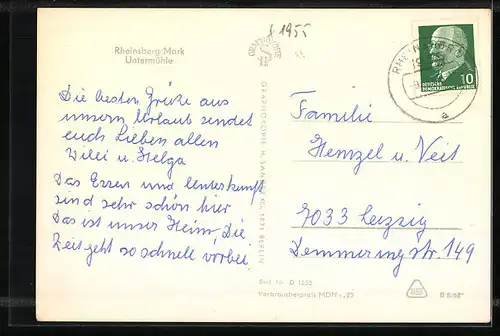 Rheinsberg/Mark
Untermühle
1955
Die besten Grüße aus
unserm Urlaub sendet
euch Lieben allen
Willi u. Helga
Das Essen und Unterkunft
sind sehr schön hier
Das ist unser Heim, Die
Zeit geht so schnell vorbei.
GRAPHOKOPIE H. SANDER KG, 1071 BERLIN
RHEINSBERG
a
10
DEUTSCHE
DEMOKRATISCHE REPUBLIK
Familie
Hempel u. Veit
7033 Leipzig
Demmeringstr. 149
Best. Nr. D 1532
Verbraucherpreis MDN -,25